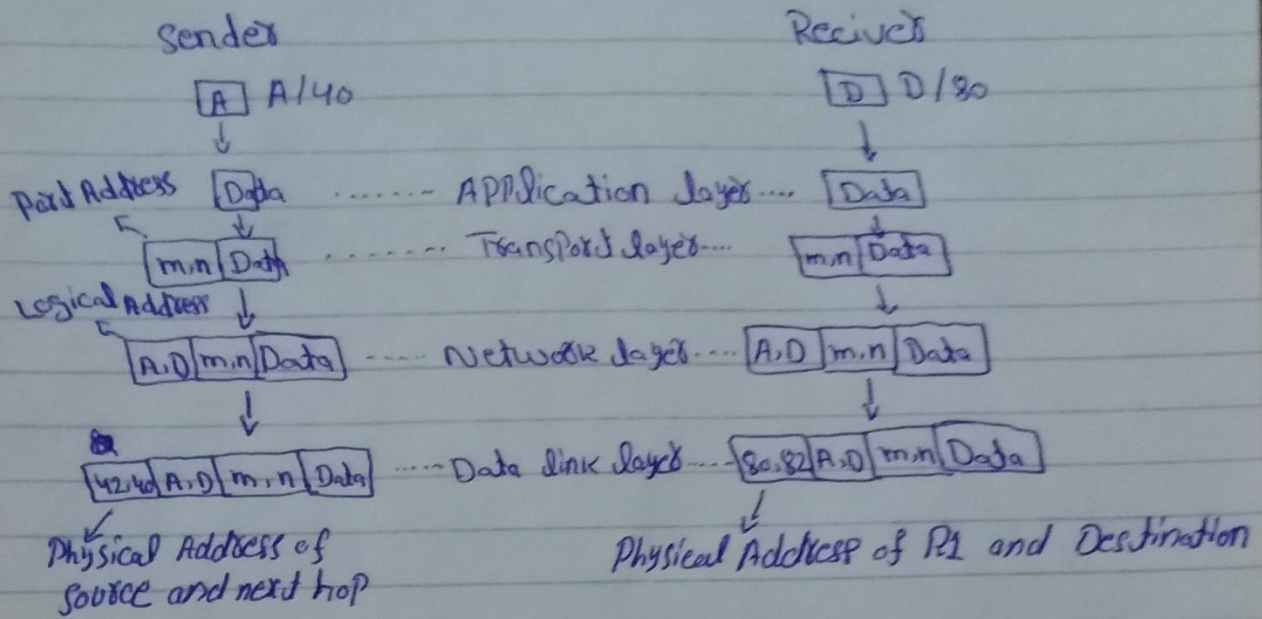 Sender Reciver
A A/40 D D/80
Port Address Data ....... Application layer .... Data
m,n Data ........ Transport layer .... m,n Data
Logical Address
A,D m,n Data ..... Network layer .... A,D m,n Data
42,40 A,D m,n Data ..... Data link layer .... 80,82 A,D m,n Data
Physical Address of
source and next hop
Physical Address of R1 and Destination